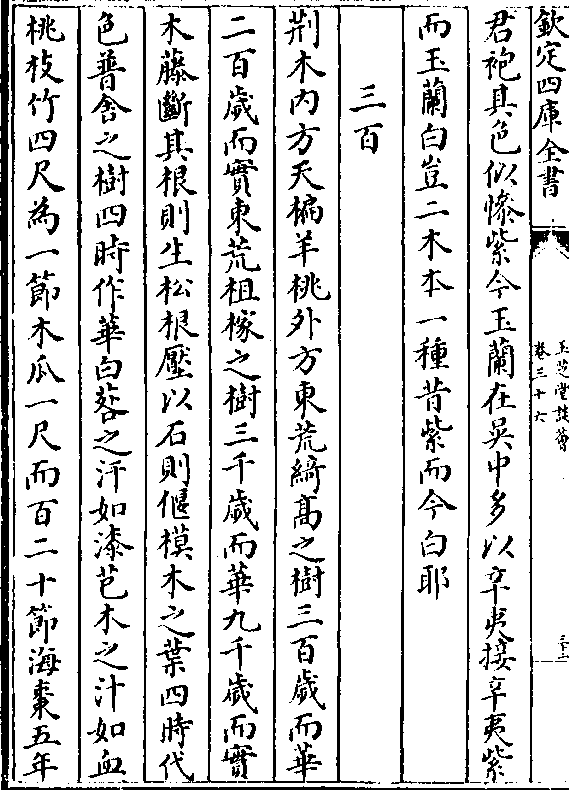 欽定四庫全書
玉芝堂談薈
卷三十六
三十二
君袍其色似慘紫今玉蘭在吳中多以辛夷接辛夷紫
而玉蘭白豈二木本一種昔紫而今白耶
三百
荆木內方天楄羊桃外方東荒綺髙之樹三百歲而華
二百歲而實東荒柤稼之樹三千歲而華九千歲而實
木藤斷其根則生松根壓以石則偃模木之葉四時代
色普舍之樹四時作華白䓘之汗如漆芑木之汁如血
桃枝竹四尺為一節木瓜一尺而百二十節海棗五年